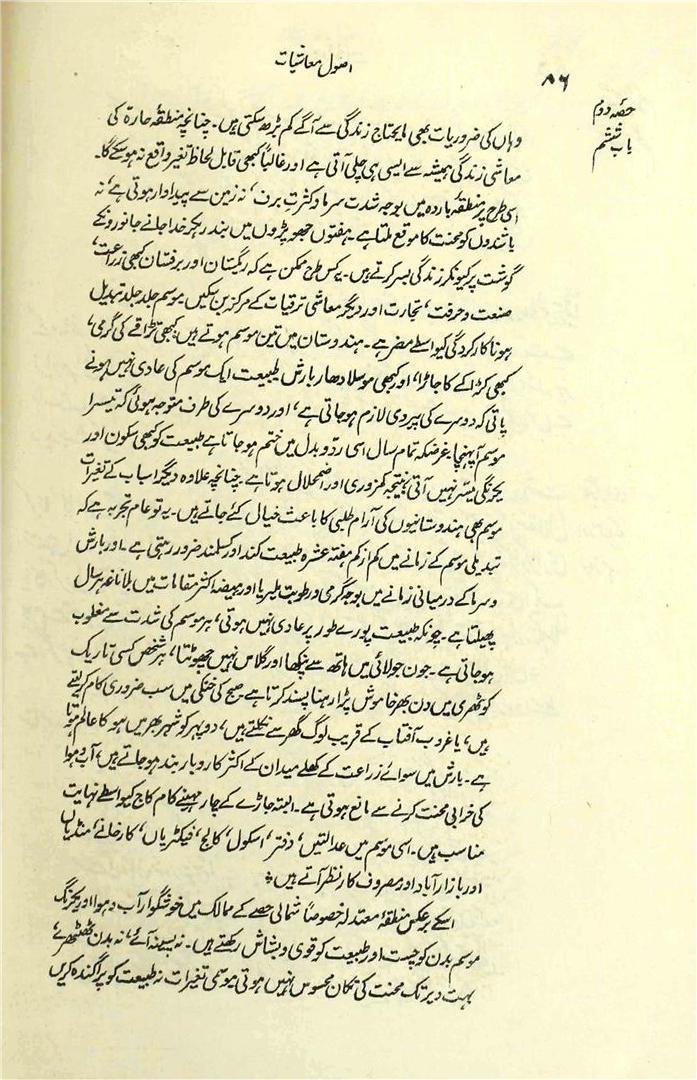 ۸۶
اصول معاشیات
حصۂ دوم
باب ششم
وہاں کی ضروریات بھی مایحتاج زندگی سے آگے کم بڑھ سکتی ہیں۔ چنانچہ منطقۂ حارۃ کی
معاشی زندگی ہمیشہ سے ایسی ہی چلی آتی ہے اور غالباً کبھی قابل لحاظ تغیر واقع نہ ہو سکے گا۔
اسی طرح پر منطقۂ باردہ میں بوجہ شدت سرما و کثرتِ برف، نہ زمین سے پیداوار ہوتی ہے، نہ
باشندوں کو محنت کا موقع ملتا ہے۔ ہفتوں جھوپڑوں میں بند رہکر خدا جانے جانورونکے
گوشت پر کیونکر زندگی بسر کرتے ہیں۔ پس کس طرح ممکن ہے کہ ریگستان اور برفستان کبھی زراعت،
صنعت و حرفت، تجارت اور دیگر معاشی ترقیات کے مرکز بن سکیں۔ موسم جلد جلد تبدیل
ہونا کارکردگی کیواسطے مضر ہے۔ ہندوستان میں تین موسم ہوتے ہیں، کبھی تڑاقے کی گرمی،
کبھی کڑاکے کا جاڑا، اور کبھی موسلا دھار بارش طبیعت ایک موسم کی عادی نہیں ہونے
پاتی کہ دوسرے کی پیروی لازم ہو جاتی ہے، اور دوسرے کی طرف متوجہ ہوئی کہ تیسرا
موسم آ پہنچا۔ غرضکہ تمام سال اسی ردو بدل میں ختم ہو جاتا ہے طبیعت کو کبھی سکون اور
یکرنگی میسر نہیں آتی، نتیجہ کمزوری اور اضمحلال ہوتا ہے۔ چنانچہ علاوہ دیگر اسباب کے تغیرات
موسم بھی ہندوستانیوں کی آرام طلبی کا باعث خیال کئے جاتے ہیں۔ یہ تو عام تجربہ ہے کہ
تبدیلی موسم کے زمانے میں کم از کم ہفتہ عشرہ طبیعت کند اور کسلمند ضرور رہتی ہے۔ اور بارش
و سرما کے درمیانی زمانے میں بوجہ گرمی و رطوبت ملیریا اور ہیضہ اکثر مقامات میں بلا ناغہ ہر سال
پھیلتا ہے۔ چونکہ طبیعت پورے طور پر عادی نہیں ہوتی، ہر موسم کی شدت سے مغلوب
ہو جاتی ہے۔ جون جولائی میں ہاتھ سے پنکھا اور گلاس نہیں چھوٹتا، ہر شخص کسی تاریک
کوٹھری میں دن بھر خاموش پڑا رہنا پسند کرتا ہے۔ صبح کی خنکی میں سب ضروری کام کر لیتے
ہیں، یا غروب آفتاب کے قریب لوگ گھر سے نکلتے ہیں، دوپہر کو شہر بھر میں ہو کا عالم ہوتا
ہے۔ بارش میں سوائے زراعت کے کھلے میدان کے اکثر کاروبار بند ہو جاتے ہیں، آب و ہوا
کی خرابی محنت کرنے سے مانع ہوتی ہے۔ البتہ جاڑے کے چار مہینے کام کاج کیواسطے نہایت
مناسب ہیں۔ اسی موسم میں عدالتیں، دفتر، اسکول، کالج، فیکٹریاں، کارخانے، منڈیاں
اور بازار آباد اور مصروف کار نظر آتے ہیں ؞
اسکے برعکس منطقۂ معتدلہ خصوصاً شمالی حصے کے ممالک میں خوشگوار آب و ہوا اور یکرنگ
موسم بدن کو چست اور طبیعت کو قوی و بشاش رکھتے ہیں۔ نہ پسینہ آئے، نہ بدن ٹھٹھرے،
بہت دیر تک محنت کی تکان محسوس نہیں ہوتی موسمی تغیرات نہ طبیعت کو پراگندہ کریں